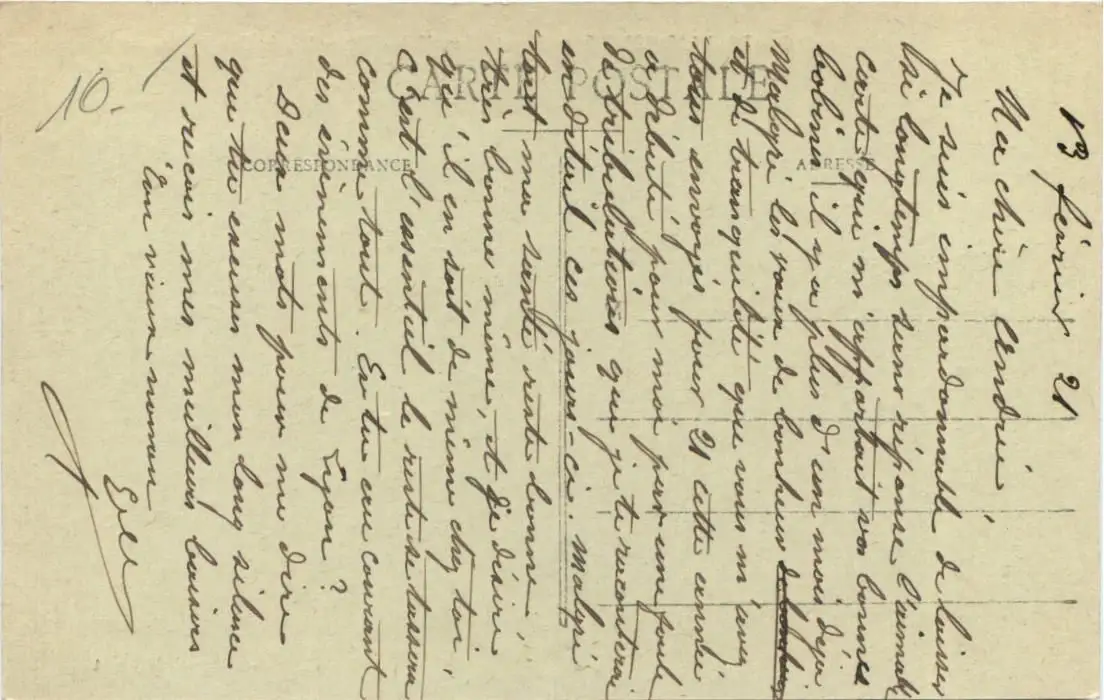 CARTE POSTALE
CORRESPONDANCE
ADRESSE
13 février 21
Ma chère Andrée
Je suis impardonnable de laisser
si longtemps sans réponse l'aimable
carte qui m'apportait vos bonnes
bobines il y a plus d'un mois déjà
Malgré les vœux de bonheur
et de tranquilité que vous m'avez
tous envoyés pour 21 cette année
a débuté pour moi par une foule
de tribulations que je te raconterai
en détail ces jours-ci. Malgré
tout ma santé reste bonne,
très bonne même, et je désire
qu'il en soit de même chez toi,
c'est l'essentiel le reste se tassera
comme tout. Es tu au courant
des évènements de Lyon?
Deux mots pour me dire
que tu excuses mon long silence
et reçois mes meilleurs baisers
Ton vieux
10.